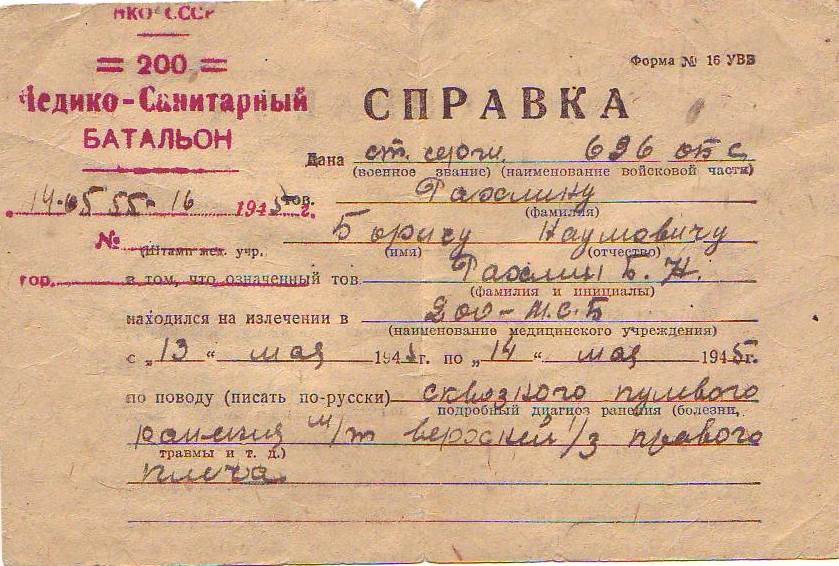 НКО СССР
= 200 =
Медико-Санитарный
БАТАЛЬОН
14.05 55-16 1945 г.
№
(Штамп леч. учр.
гор.
Форма № 16 УВВ
СПРАВКА
Дана ст. серж. 696 опс
(военное звание) (наименование войсковой части)
тов. Рахлину
(фамилия)
Борису Наумовичу
(имя) (отчество)
в том, что означенный тов. Рахлин Б. Н.
(фамилия и инициалы)
находился на излечении в 200-М.С.Б
(наименование медицинского учреждения)
с „13“ мая 1945г. по „14“ мая 1945г.
по поводу (писать по-русски) сквозного пулевого
подробный диагноз ранения (болезни,
ранения м/т верхней 1/3 правого
травмы и т. д.)
плеча.